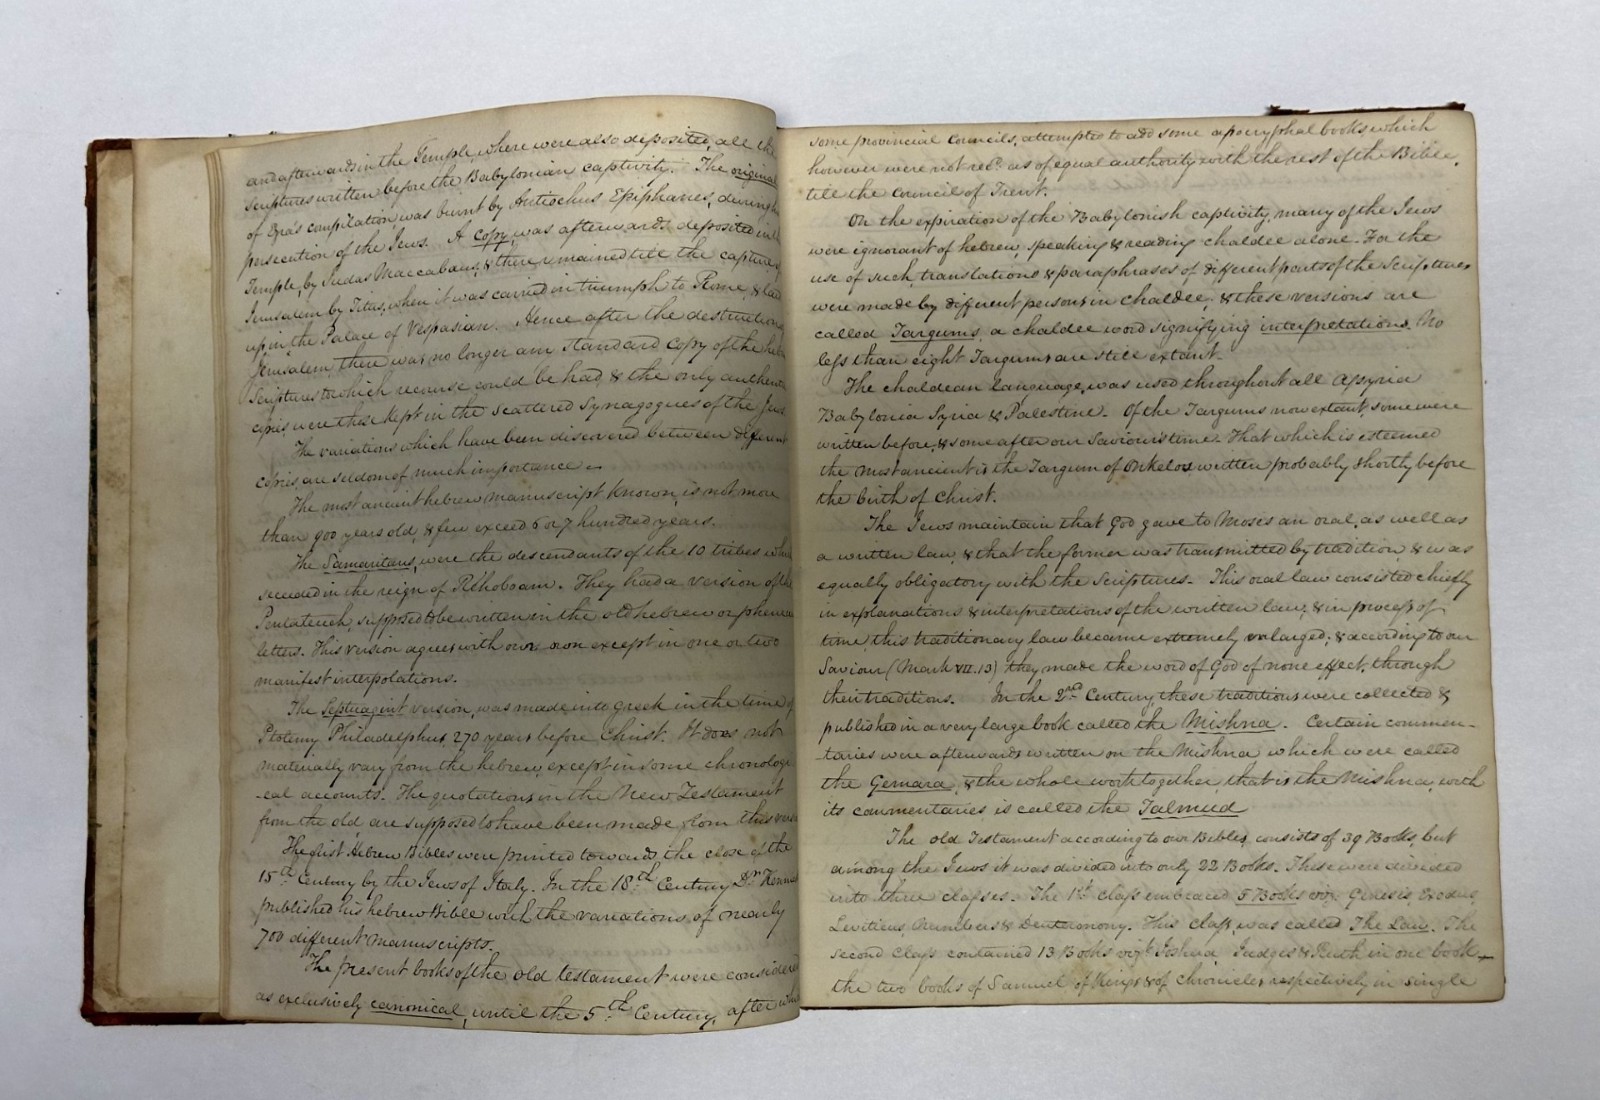 and afterwards in the Temple, where were also deposited, all the
scriptures written before the Babylonian captivity. The original
of Ezra's compilation, was burnt by Antiochus Epiphanes, during
persecution of the Jews. A copy, was afterwards deposited in
Temple, by Judas Maccabaus, & there remained till the capture
Jerusalem by Titus, when it was carried in triumph to Rome, & laid
up in the Palace of Vespasian. Hence after the destruction
Jerusalem, there was no longer any standard copy of the
Scriptures to which recourse could be had, & the only
copies, were those kept in the scattered Synagogues of the Jews
The variations which have been discovered between different
copies, are seldom of much importance.
The most ancient hebrew manuscript known, is not more
than 900 years old, & few exceed 6 or 7 hundred years.
The Samaritans, were the descendants of the 10 tribes who
seceded in the reign of Rehoboam. They had a version of the
Pentateuch, supposed to be written in the old hebrew or
letters. This version agrees with our own except in one or two
manifest interpolations.
The Septuagint version, was made into greek in the time of
Ptolemy Philadelphus, 270 years before Christ. It does not
materially vary from the hebrew, except in some chronologi
-cal accounts. The quotations in the New Testament
from the old, are supposed to have been made from this
The first Hebrew Bibles were printed towards the close of the
15th Century by the Jews of Italy. In the 18th Century Dr
published his hebrew Bible with the variations of nearly
700 different Manuscripts.
The present books of the old testament were considered
as exclusively canonical, until the 5th Century, after
some provincial Councils, attempted to add some apocryphal books, which
however were not recd. as of equal authority with the rest of the Bible,
till the Council of Trent.
On the expiration of the Babylonish captivity, many of the Jews
were ignorant of hebrew, speaking & reading chaldee alone. For the
use of such, translations & paraphrases of different parts of the Scriptures
were made by different persons in chaldee, & these versions are
called Targums, a chaldee word signifying interpretations. No
less than eight Targums are still extant.
The chaldean language, was used throughout all Assyria
Babylonia Syria & Palestine. Of the Targums now extant, some were
written before, & some after our Saviour's time. That which is esteemed
the most ancient is the Targum of Onkelos written probably shortly before
the birth of Christ.
The Jews maintain that God gave to Moses an oral, as well as
a written law, & that the former was transmitted by tradition, & was
equally obligatory with the Scriptures. This oral law consisted chiefly
in explanations & interpretations of the written law; & in process of
time, this traditionary law became extremely enlarged; & according to our
Saviour (Mark VII. 13) they made the word of God of none effect, through
their traditions. In the 2nd Century, these traditions were collected &
published in a very large book called the Mishna. Certain commen-
taries were afterwards written on the Mishna which were called
the Gemara, & the whole work together, that is the Mishna, with
its commentaries is called the Talmud
The old Testament according to our Bibles, consists of 39 Books, but
among the Jews it was divided into only 22 Books. These were divided
into three classes. The 1st class embraced 5 Books viz. Genesis, Exodus,
Leviticus, Numbers & Deuteronomy. This class, was called The Law. The
second class contained 13 Books viz. Joshua Judges & Ruth in one book
the two books of Samuel of Kings & of Chronicles respectively in single